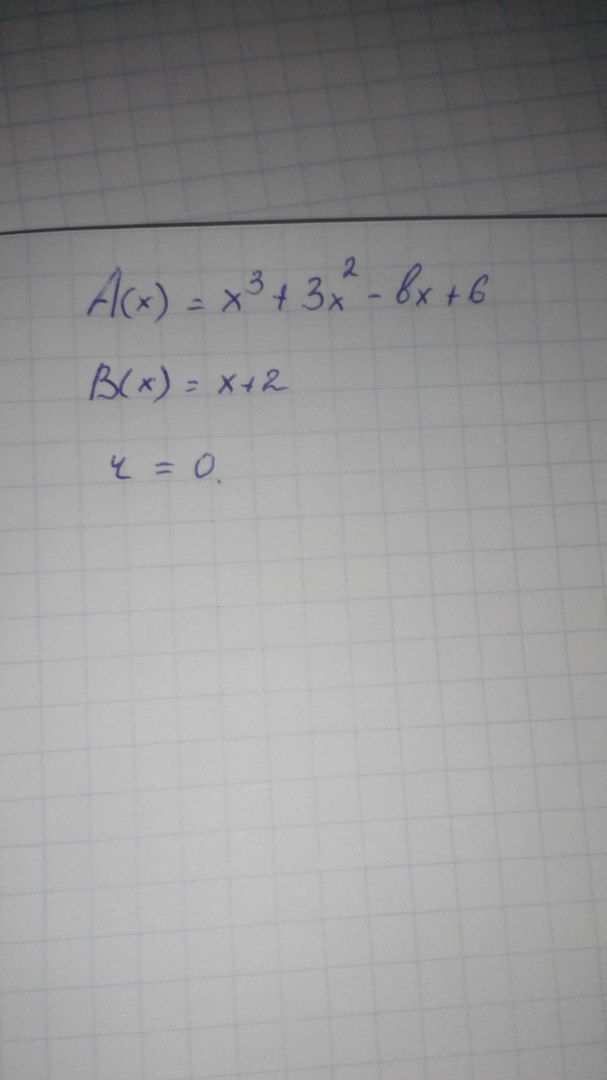 A(x) = x³ + 3x² - bx + 6
B(x) = x+2
r = 0.